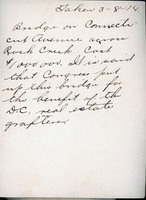 Taken 3-8-14
Bridge on Connecti-
cut Avenue across
Rock Creek. Cost
$1,000,000. It is said
that Congress put
up this bridge for
the benefit of the
D.C. real estate
grafters.